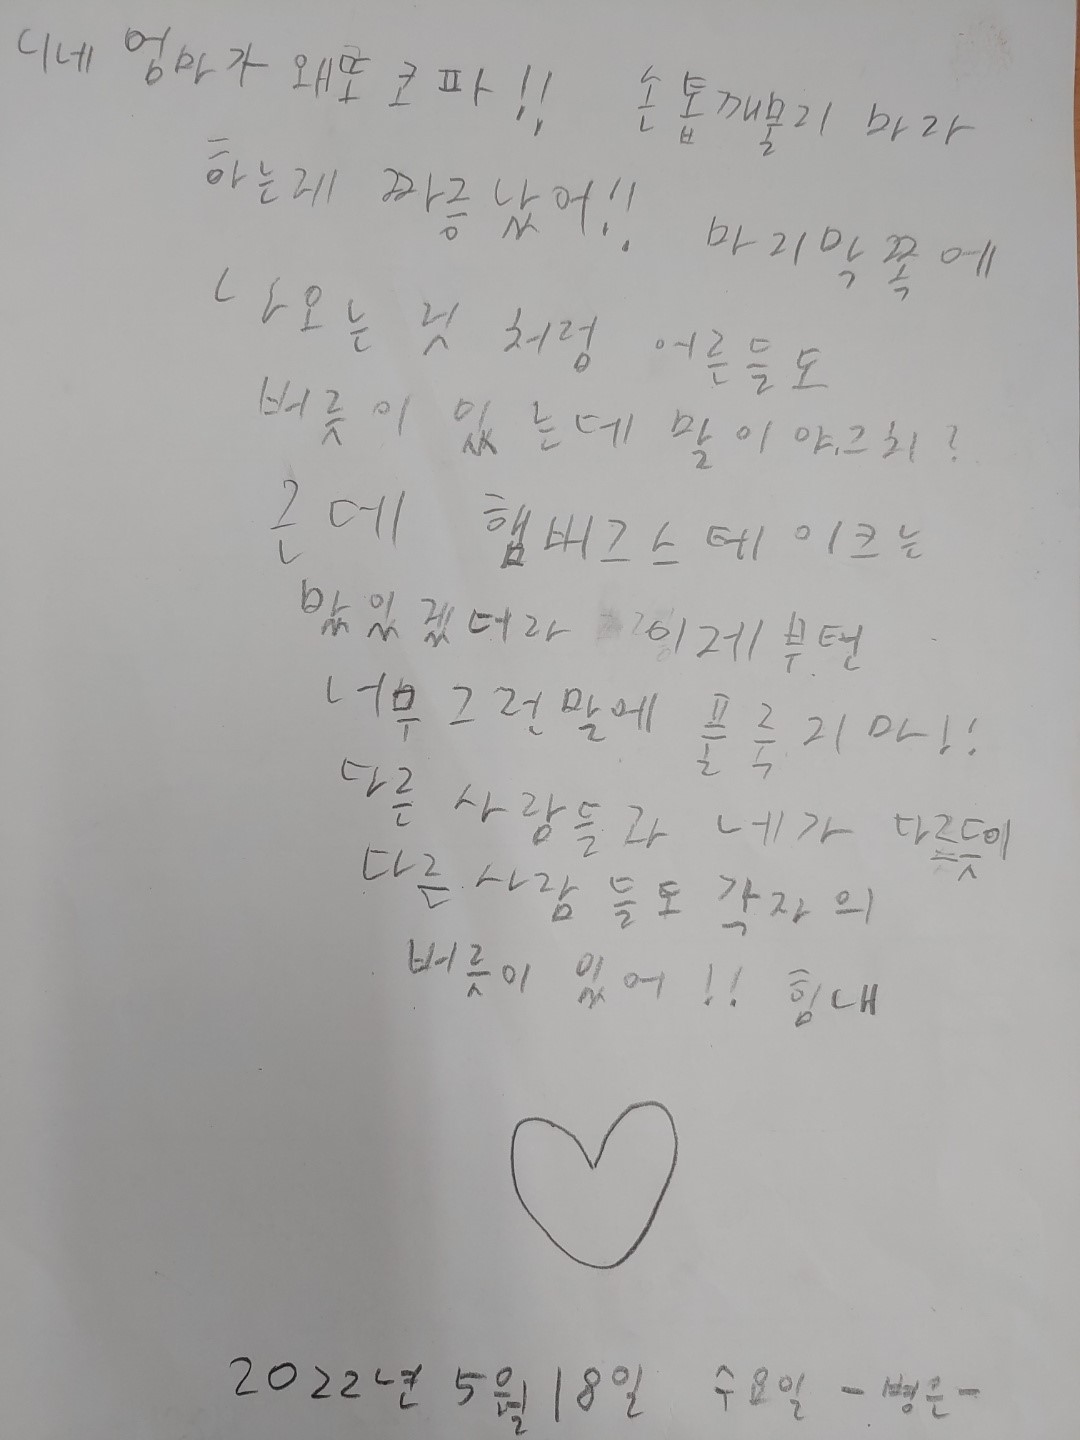 니네 엄마가 왜또 코파!! 손톱깨물리 마라
하는레 짜증났어!! 마지막쪽에
나오는 것 처럼 어른들도
버릇이 있는데 말이야.그치?
근데 햄버그스테이크는
맛있겠더라 이제부턴
너무 그런말에 풀죽지마!!
다른 사람들과 네가 다르듯이
다른 사람들도 각자의
버릇이 있어!! 힘내
2022년 5월 18일 수요일 -병은-